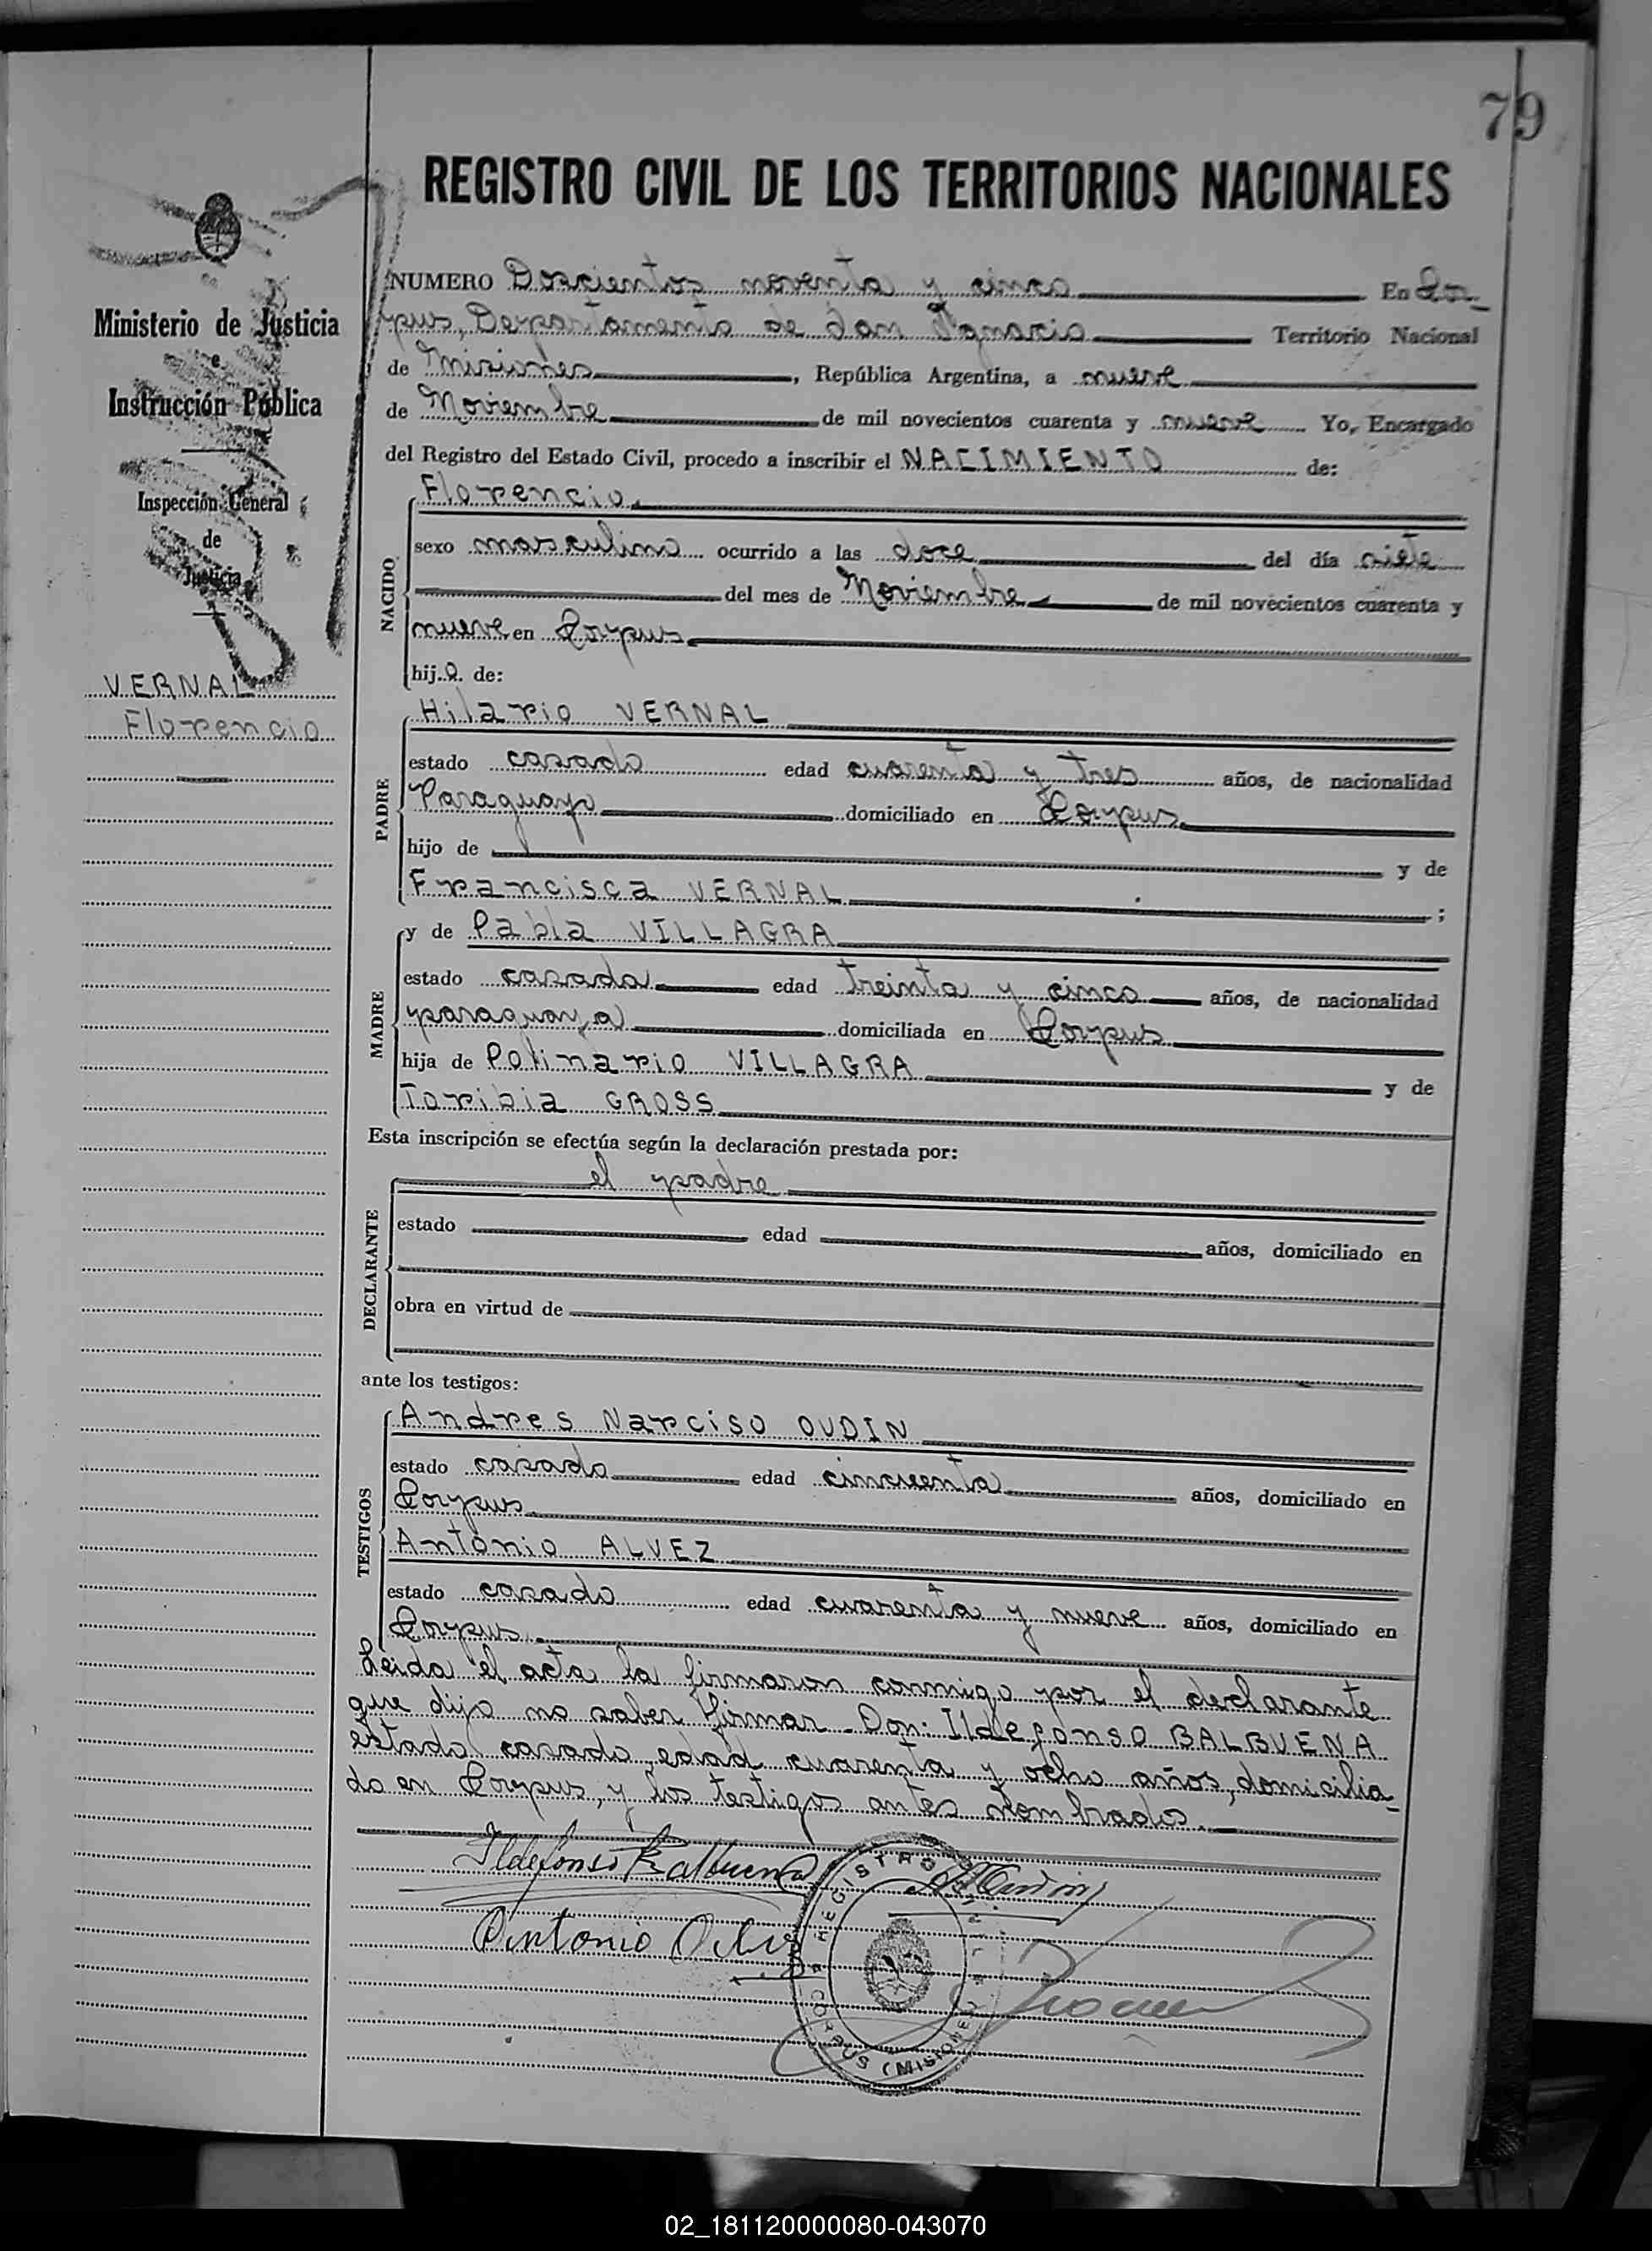 79
REGISTRO CIVIL DE LOS TERRITORIOS NACIONALES
Ministerio de Justicia
e
Instrucción Pública
Inspección General
de
Justicia
VERNAL
Florencio
NUMERO Doscientos noventa y cinco En Cor-
pus, Departamento de San Ignacio Territorio Nacional
de Misiones, República Argentina, a nueve
de Noviembre de mil novecientos cuarenta y nueve Yo, Encargado
del Registro del Estado Civil, procedo a inscribir el NACIMIENTO de:
NACIDO
Florencio
sexo masculino ocurrido a las doce del día siete
del mes de Noviembre de mil novecientos cuarenta y
nueve en Corpus
hijo de:
PADRE
Hilario VERNAL
estado casado edad cuarenta y tres años, de nacionalidad
Paraguayo domiciliado en Corpus
hijo de y de
Francisca VERNAL ;
MADRE
y de Pabla VILLAGRA
estado casada edad treinta y cinco años, de nacionalidad
paraguaya domiciliada en Corpus
hija de Polinario VILLAGRA y de
Toribia GROSS
Esta inscripción se efectúa según la declaración prestada por:
DECLARANTE
el padre
estado edad años, domiciliado en
obra en virtud de
ante los testigos:
TESTIGOS
Andres Narciso OUDIN
estado casado edad cincuenta años, domiciliado en
Corpus
Antonio ALVEZ
estado casado edad cuarenta y nueve años, domiciliado en
Corpus
Leida el acta la firmaron conmigo por el declarante
que dijo no saber firmar - Don: Ildefonso BALBUENA
estado casado edad cuarenta y ocho años, domicilia-
do en Corpus, y los testigos antes nombrados.
Ildefonso Balbuena
Antonio
REGISTRO CIVIL
CORPUS (MISIONES)
02_181120000080-043070